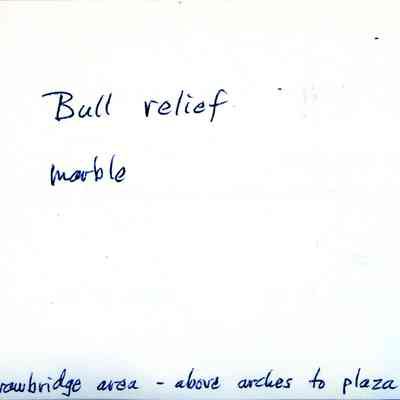 Bull relief
marble
rawbridge area - above arches to plaza